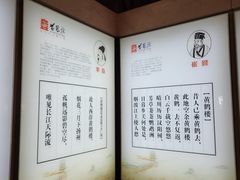 崔颢
【黄鹤楼】
昔人已乘黄鹤去，
此地空余黄鹤楼。
黄鹤一去不复返，
白云千载空悠悠。
晴川历历汉阳树，
芳草萋萋鹦鹉洲。
日暮乡关何处是，
烟波江上使人愁。
故人西辞黄鹤楼，
烟花三月下扬州。
孤帆远影碧空尽，
唯见长江天际流